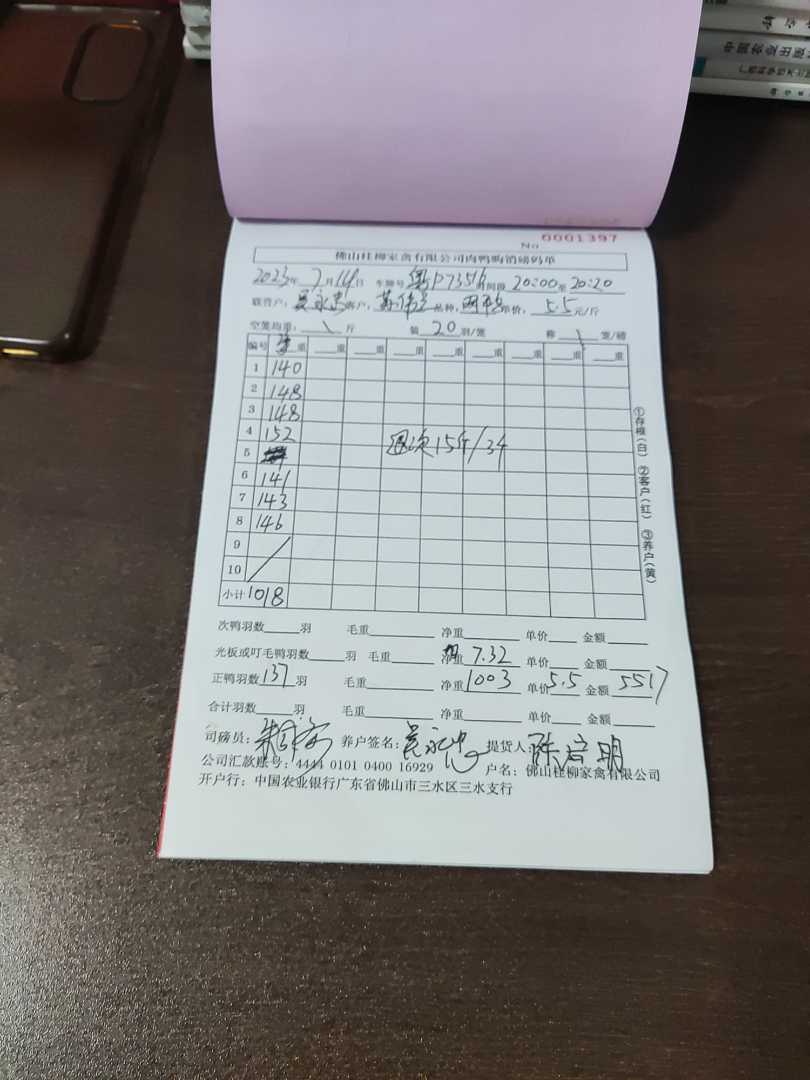 中国农业出版
广西科学技术
No 0001397
佛山桂柳家禽有限公司肉鸭购销磅码单
2023年7月14日 车牌号 粤P7356 时间段 20:00至20:20
联营户: 吴永忠 客户: 品种: 单价: 5.5元/斤
空笼均重: \ 斤 装 20 羽/笼 称 \ 笼/磅
编号 重 重 重 重 重 重 重 重 重
1 140
2 148
3 148
4 152 退次15斤/3个
5
6 141
7 143
8 146
9
10
小计 1018
①存根(白) ②客户(红) ③养户(黄)
次鸭羽数 羽 毛重 净重 单价 金额
光板或叮毛鸭羽数 羽 毛重 净重 7.32 单价 金额
正鸭羽数 137 羽 毛重 净重 1003 单价 5.5 金额 5517
合计羽数 羽 毛重 净重 单价 金额
司磅员: 养户签名: 吴永忠 提货人: 陈启明
公司汇款账号: 4444 0101 0400 16929 户名: 佛山桂柳家禽有限公司
开户行: 中国农业银行广东省佛山市三水区三水支行